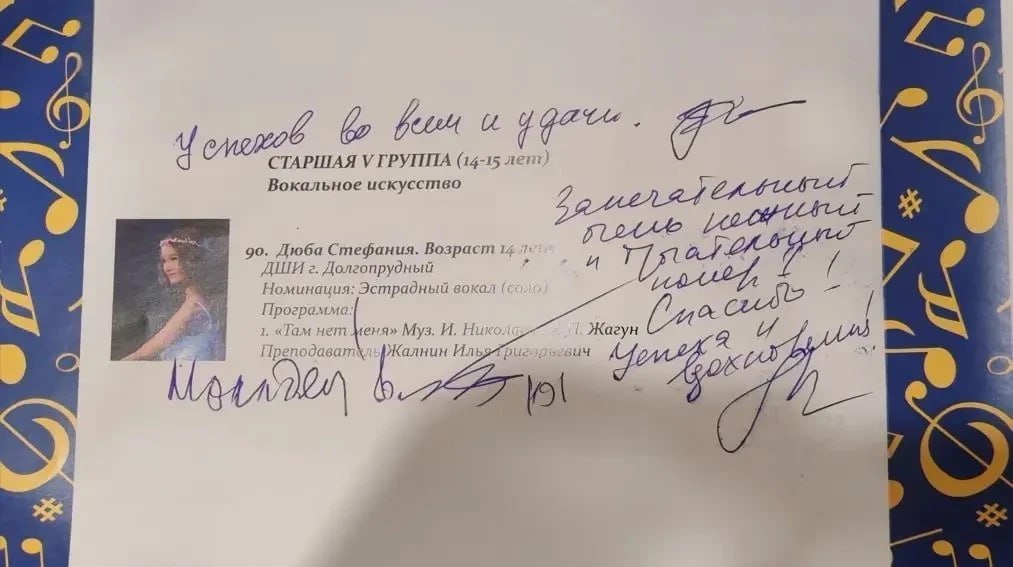 Успехов во всем и удачи.
СТАРШАЯ V ГРУППА (14-15 лет)
Вокальное искусство
90. Дюба Стефания. Возраст 14 лет
ДШИ г. Долгопрудный
Номинация: Эстрадный вокал (соло)
Программа:
1. «Там нет меня» Муз. И. Николаев Л. Жагун
Преподаватель Жалнин Илья Григорьевич
Замечательный
очень нежный
и
номер - !
Спасибо !
Успеха и
вдохновения!
Молодец